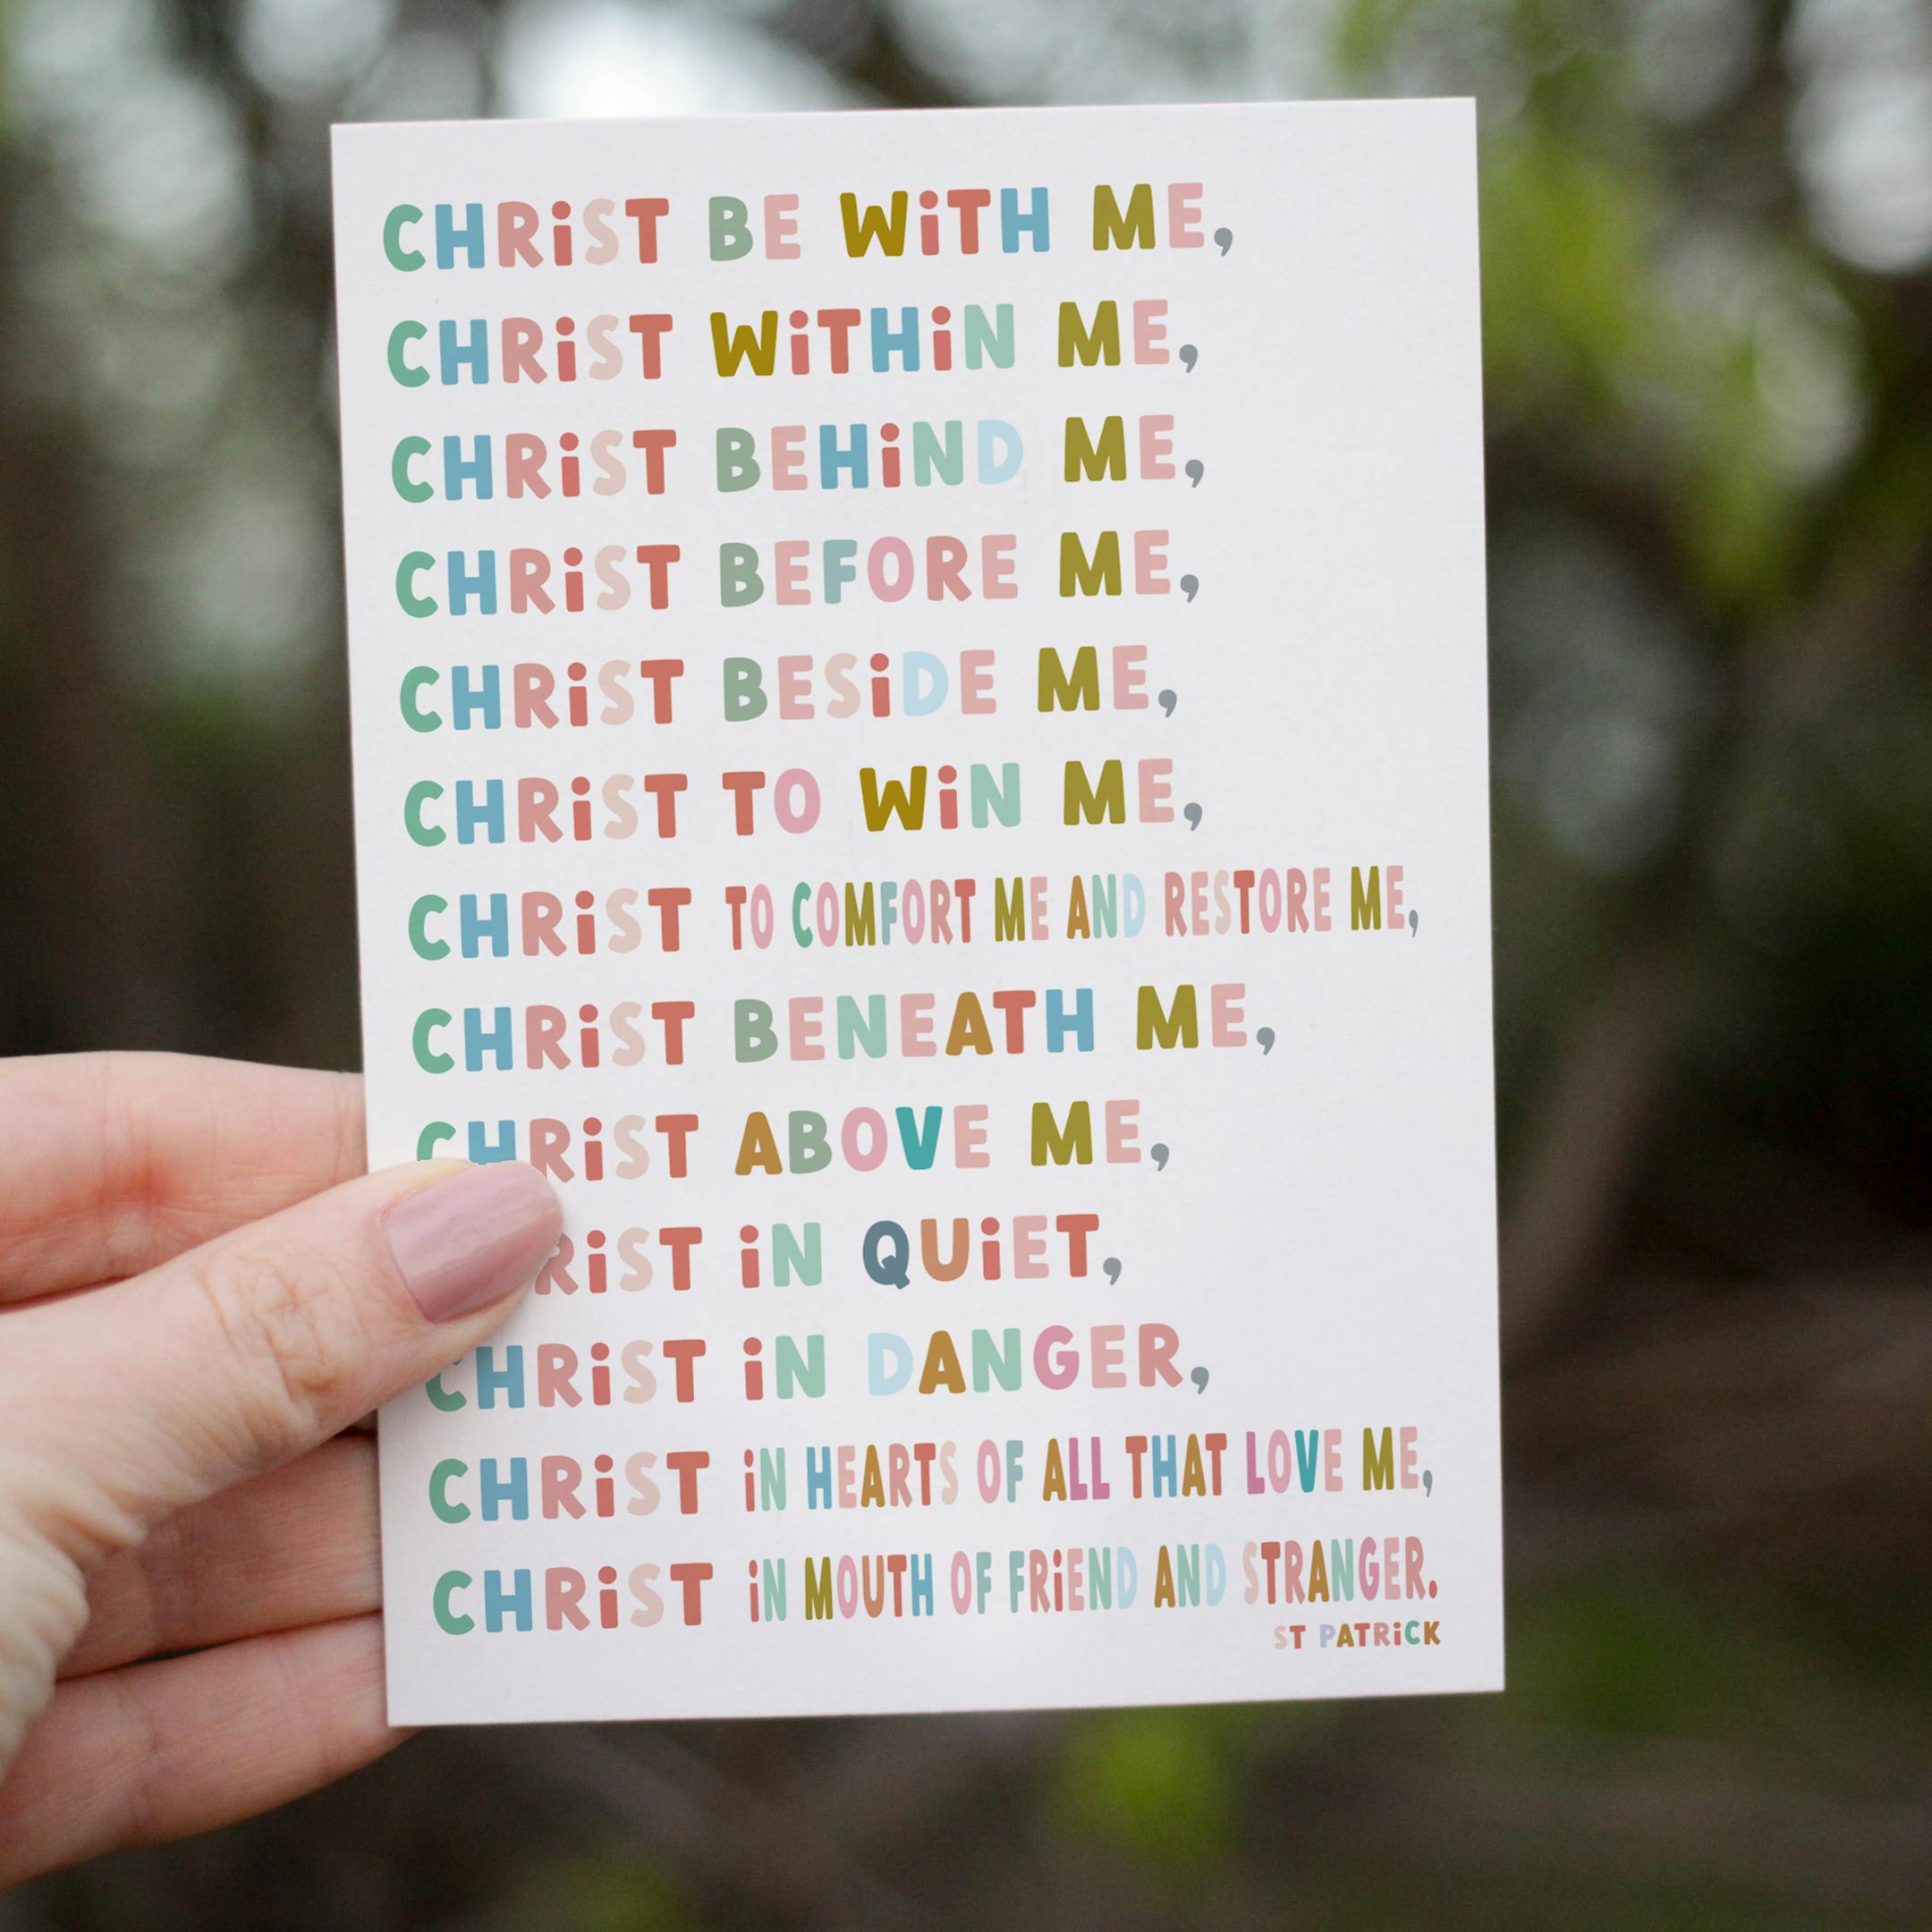 CHRiST BE WiTH ME,
CHRiST WiTHiN ME,
CHRiST BEHiND ME,
CHRiST BEFORE ME,
CHRiST BESiDE ME,
CHRiST TO WiN ME,
CHRiST TO COMFORT ME AND RESTORE ME,
CHRiST BENEATH ME,
CHRiST ABOVE ME,
CHRiST iN QUiET,
CHRiST iN DANGER,
CHRiST iN HEARTS OF ALL THAT LOVE ME,
CHRiST iN MOUTH OF FRiEND AND STRANGER.
ST PATRiCK